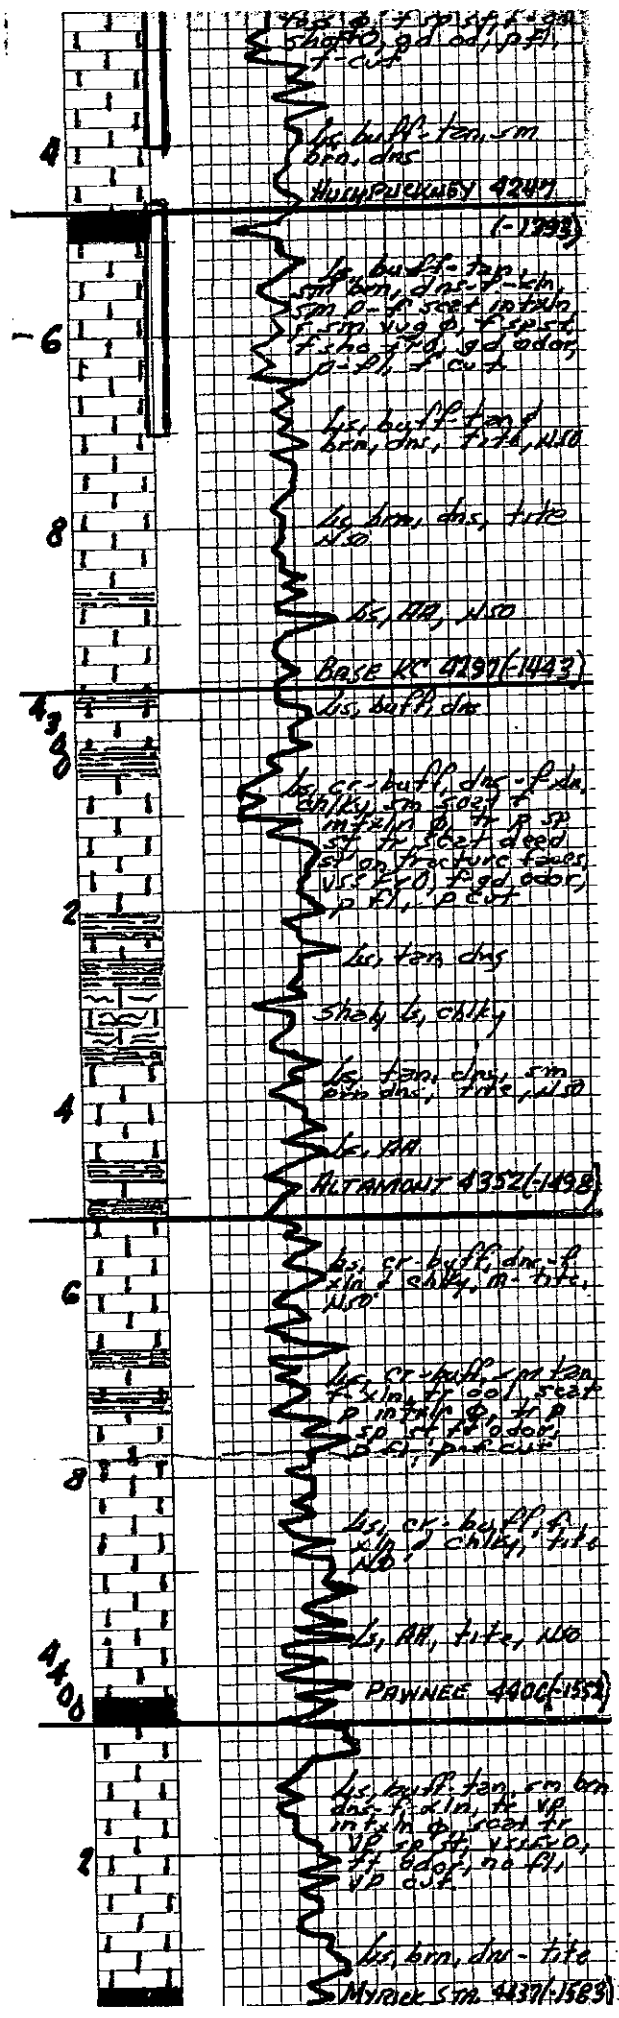 foss ø, f sp st, f-gd
sho FO, gd od, p fl,
f-cut
4
Ls, buff-tan, sm
brn, dns
HUSHPUCKNEY 4247
(-1393)
Ls, buff-tan,
sm brn, dns-f-xln,
sm p-f scat intxln,
f sm vug ø, f sp st
f sho FO, gd odor,
p-fl, f cut
6
Ls, buff-tan &
brn, dns, tite, NSO
8
Ls, brn, dns, tite
NSO
Ls, AA, NSO
BASE KC 4297(-1443)
4300
Ls, buff, dns
Ls, cr-buff, dns-f xln,
chlky, sm scat f
intxln ø, tr p sp
st, tr scat dead
st on fracture faces,
VSSFSO, f-gd odor,
p fl, p cut
2
Ls, tan, dns
Shaly Ls, chlky
Ls, tan, dns, sm
brn dns, tite, NSO
4
Ls, AA
ALTAMONT 4352(-1498)
Ls, cr-buff, dns-f
xln & chlky, m-tite,
NSO
6
Ls, cr-buff, sm tan
f-xln, tr ool, scat
p intxln ø, tr p
sp st ft odor,
p fl, p-f cut
8
Ls, cr-buff, f
xln & chlky, tite
NSO
Ls, AA, tite, NSO
4400
PAWNEE 4406(-1552)
Ls, buff-tan, sm brn
dns-f-xln, tr VP
intxln ø, scat tr
VP sp st, VSSFSO,
ft odor, no fl,
VP cut
2
Ls, brn, dns-tite
MYRICK STA. 4437(-1583)